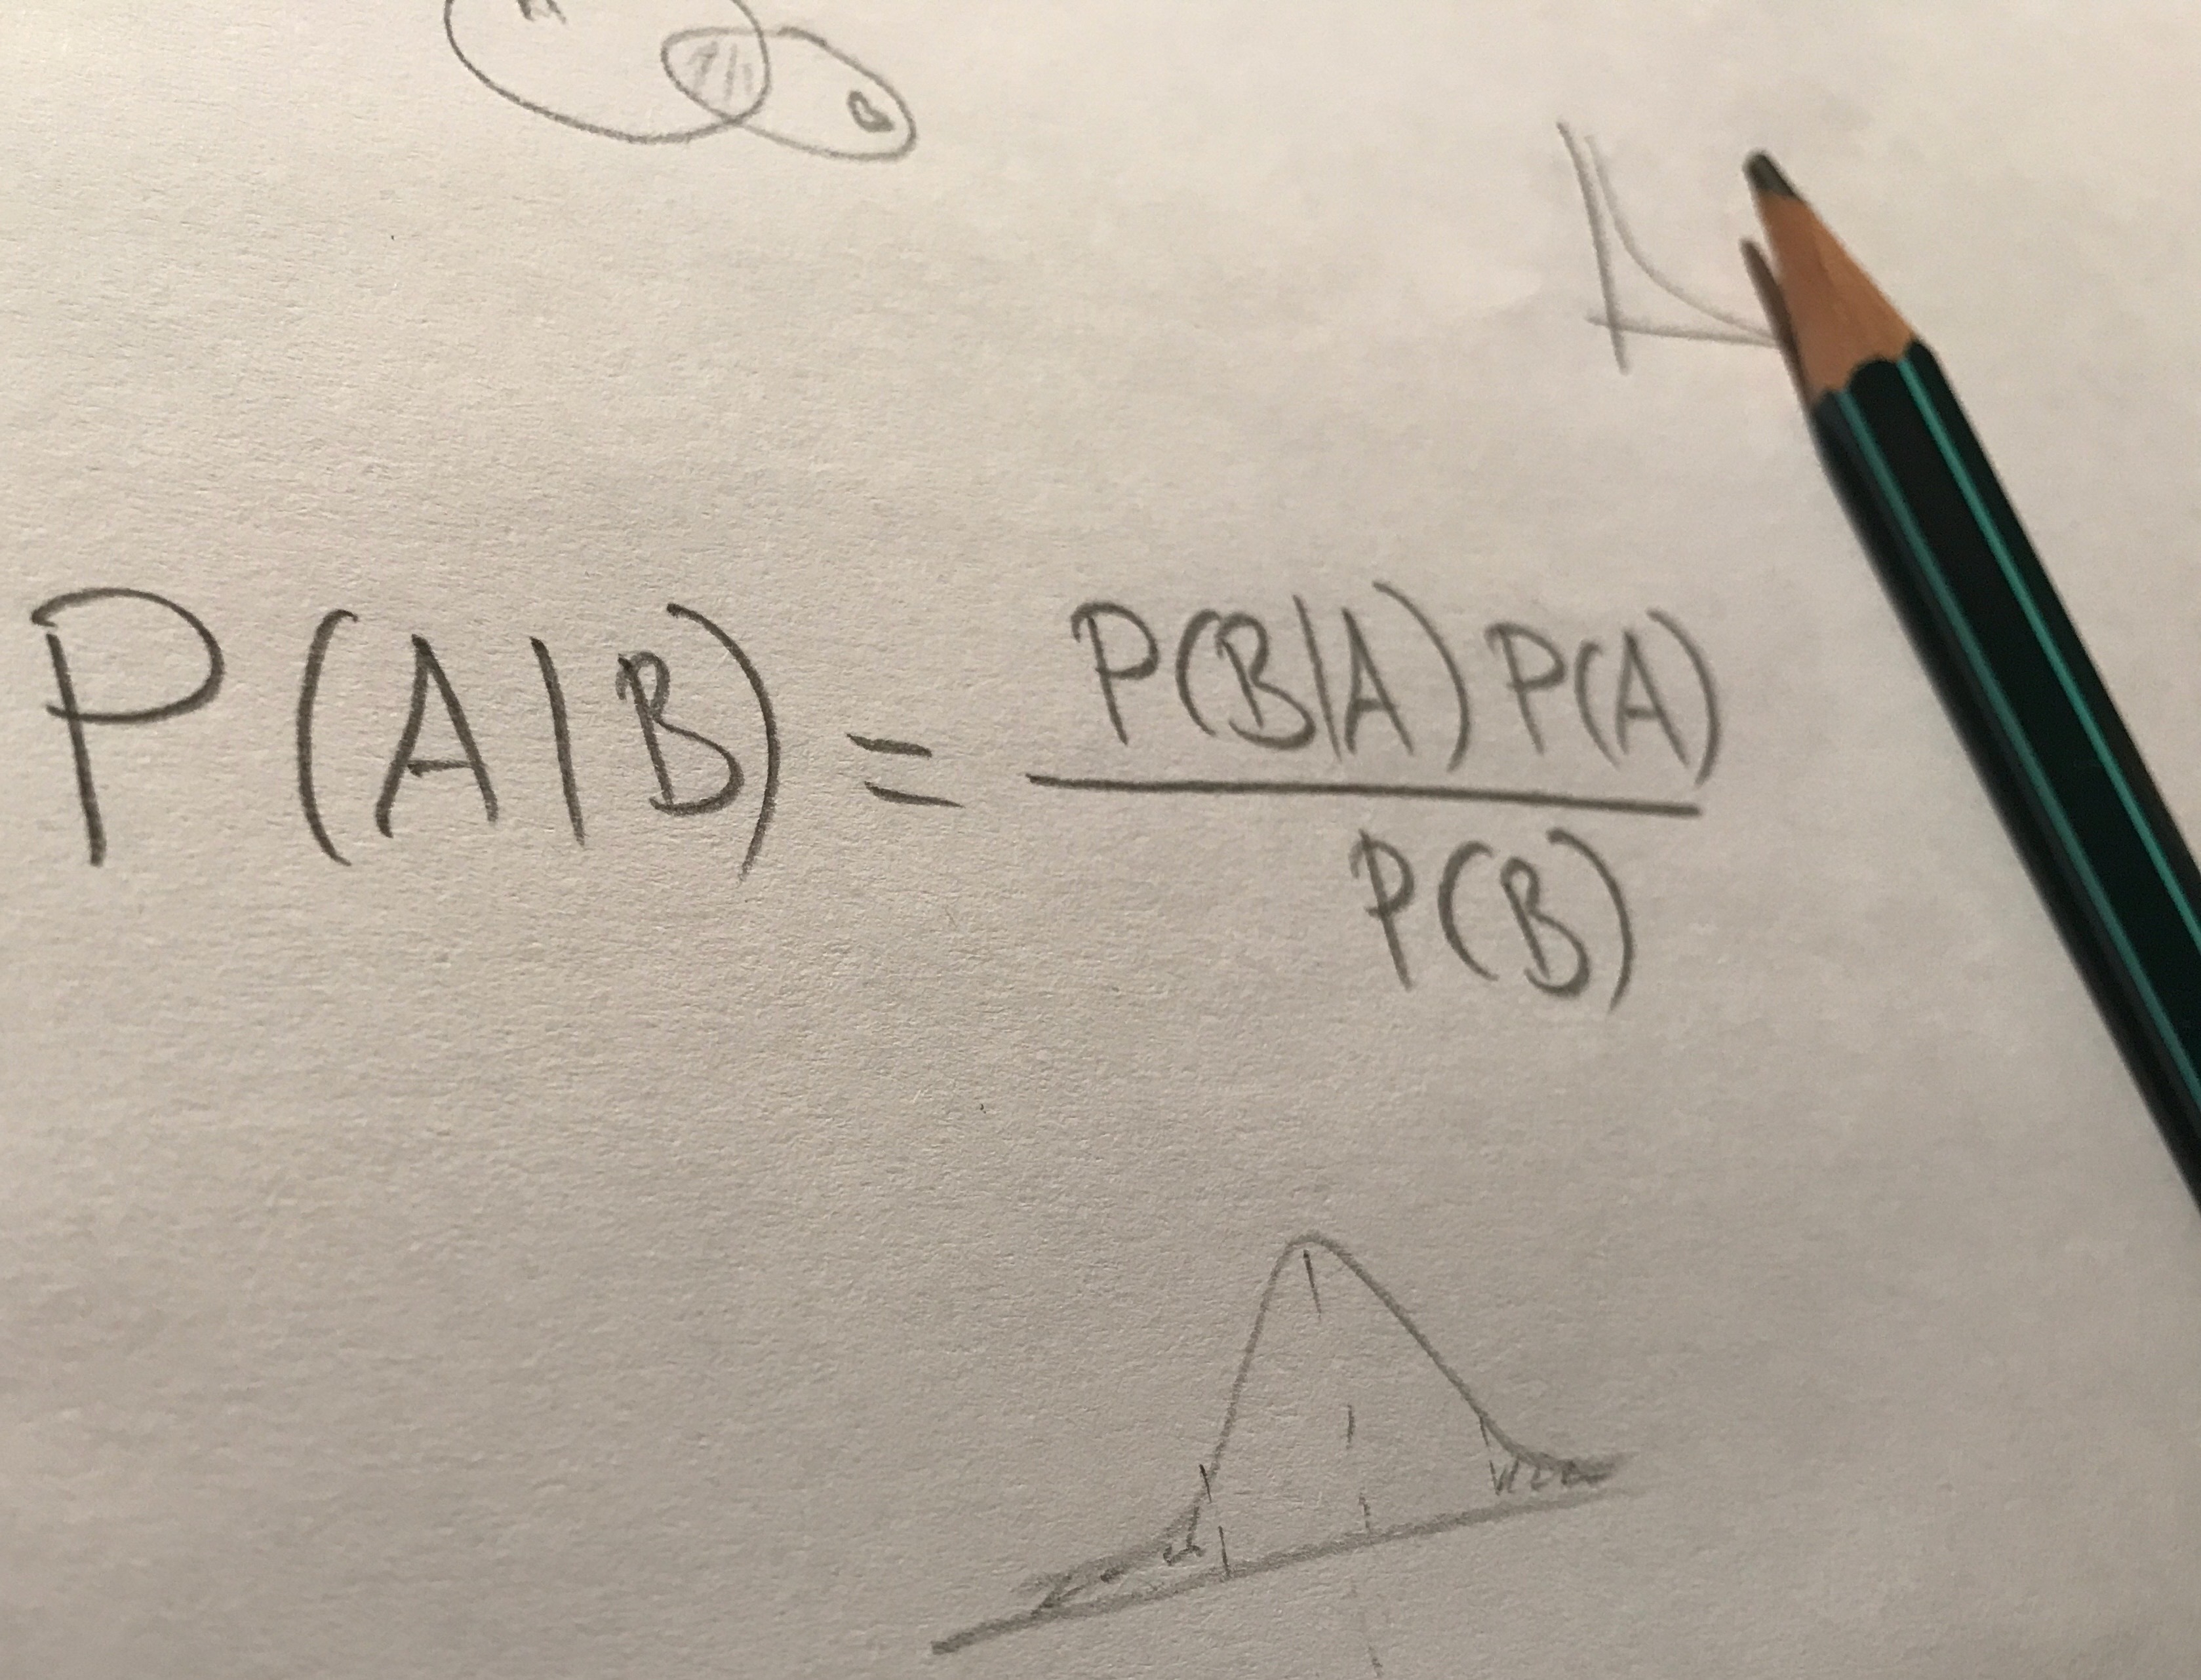 A
B
P(A|B) = P(B|A) P(A)
P(B)